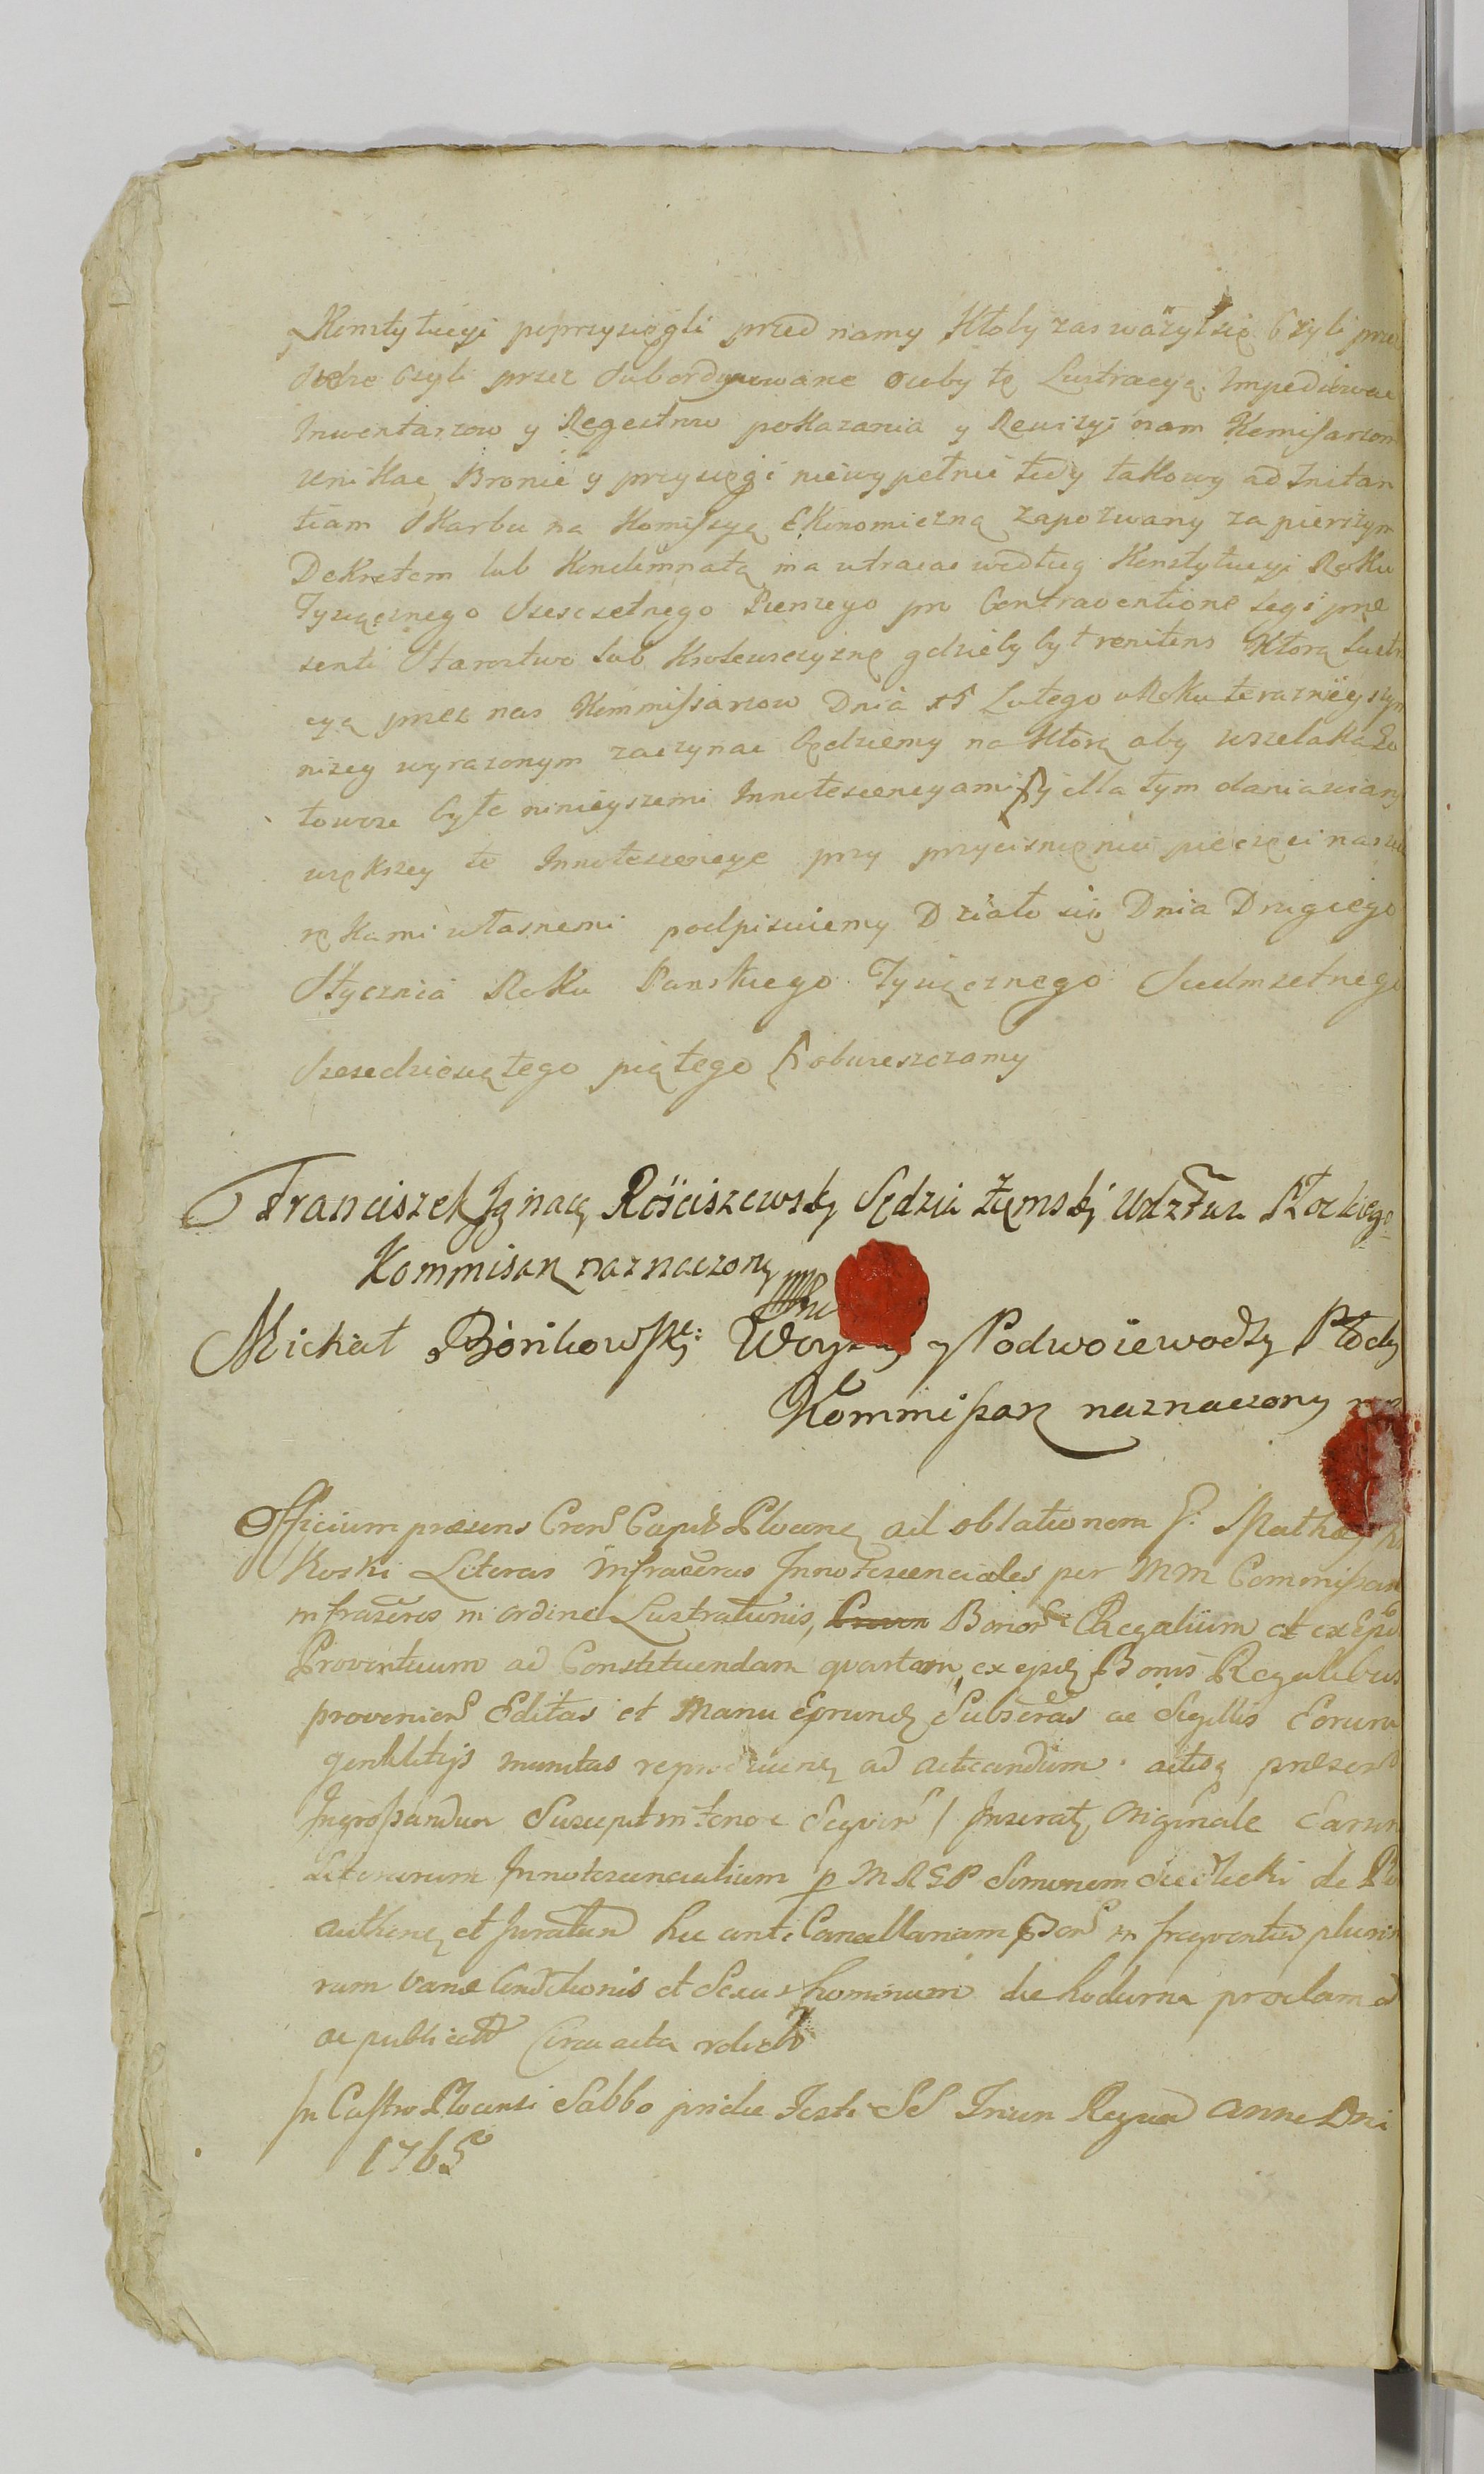 Konstytucyi poprzysięgli przed namy Ktoby zas ważył się Czyli przez
Siebie Czyli przez Subordynowane osoby tę Lustracyą Impediowac
Inwentarzow y Regestrow pokazania y Rewizyi nam Komissarzom
unikac Bronić y przysięgi niewypełnić tedy takowy ad Instan
tiam Skarbu na Komissyą Ekonomiczną zapozwany za pierszym
Dekretem lub Kondemnatą ma utracac według Konstytucyi Roku
Tysiącznego Szescsetnego Pierszego pro Contraventione legi præ
senti Starostwo lub Krolewszczyznę gdzieby był renitens Ktorą Lustra
cyą przez nas Kommissarzow Dnia 15 Lutego w Roku teraznieyszym
nizey wyrazonym zaczynac będziemy na Ktorą aby wszelaka Go
towosc była ninieyszemi Innotescencyami y dla tym dania wiary
większey te Innotescencye przy przycisnięniu pieczęci naszych
rękami własnemi podpisuiemy Działo się Dnia Drugiego
Stycznia Roku Panskiego Tysiącznego Siedmsetnego
Szescdziesiątego piątego obwieszczamy
Franciszek Ignacy Rościszewsky Sędzia Zięmsky Wdztwa Płockiego
Kommisarz naznaczony
Michał Bönikowsky: y Podwoiewodzy Płocky
Kommissarz naznaczony
Officium præsens Capit Plocen ad oblationem
Koski Literas Infrascras Innotescenciales per MM Commissar
infrascros in ordine Lustrationis, Bonor Regalium et ex
Proventuum ad Constituendam quartam ex Bonis Regalibus
provenien Editas et Manu Subscras ac Sigillis Eorum
gentilitijs munitas ad acticandum actisq præsen
Ingrossandum Suscepit in tenore Sequen / Originale Earum
Literarum Innotescencialium p M R G P Simonem de
authen et Juratum hic ante Cancellariam in frequentia pluri
rum variæ Conditionis et Sexus hominum die hodierna proclam
ac publicat Circa acta
In Castro Plocensi Sabbo pridie Festi SS Trium Regum Anno Dni
1765